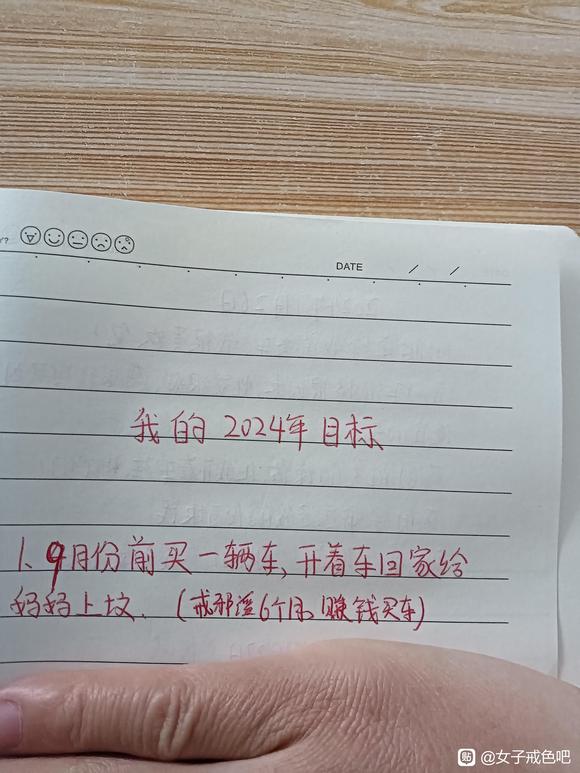 Y?
DATE / /
我的2024年目标
1、9月份前买一辆车,开着车回家给
妈妈上坟.(戒邪淫6个月,赚钱买车)
贴 @女子戒色吧